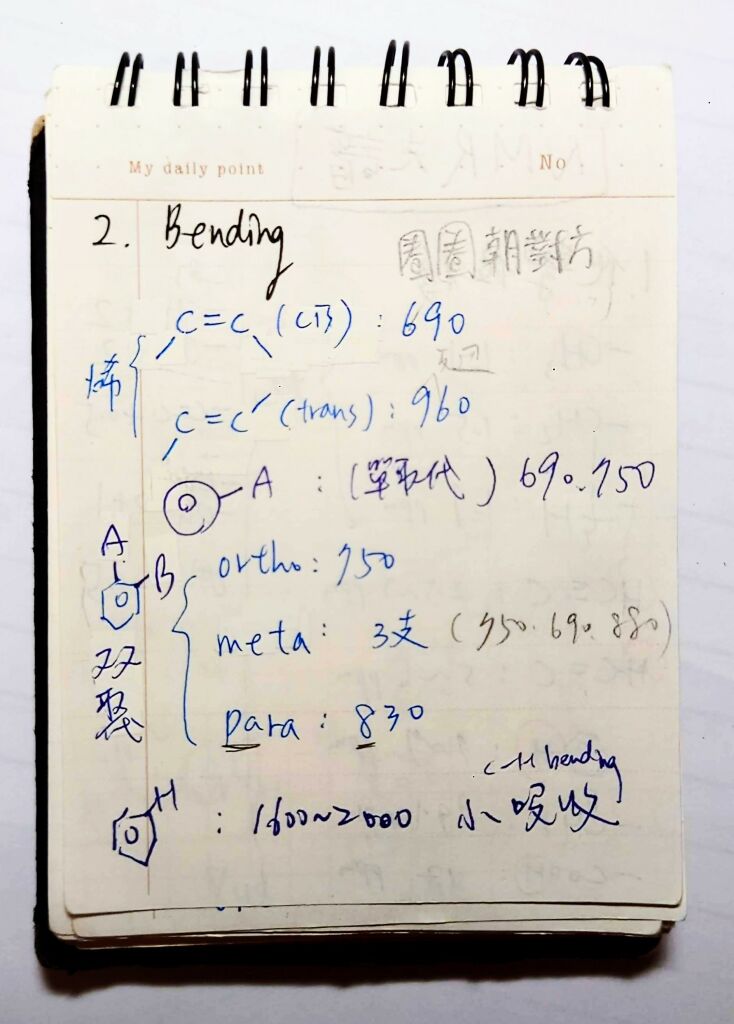 My daily point No
2. Bending
圈圈朝對方
烯
C=C (cis) : 690
C=C (trans) : 960
A : (單取代) 690.750
A
B
双
聚
ortho : 750
meta : 3支 (750.690.880)
para : 830
H : 1600~2000 小吸收
C-H bending